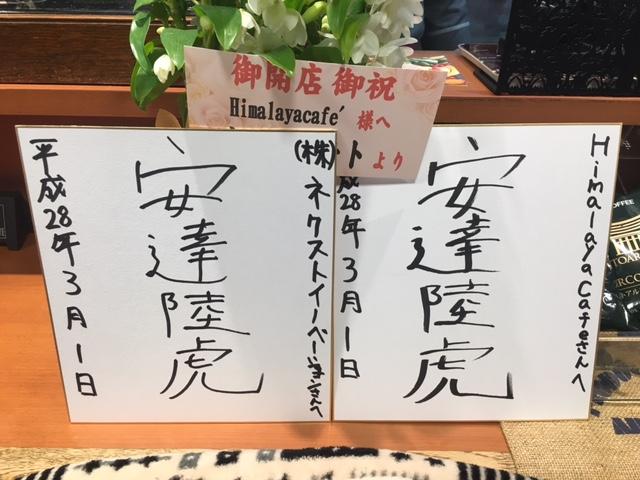 御開店御祝
Himalayacafé 様へ
ト より
(株)ネクストイノベーションさんへ
安達陸虎
平成28年3月1日
Himalaya Cafeさんへ
安達陸虎
成28年3月1日
COFFEE